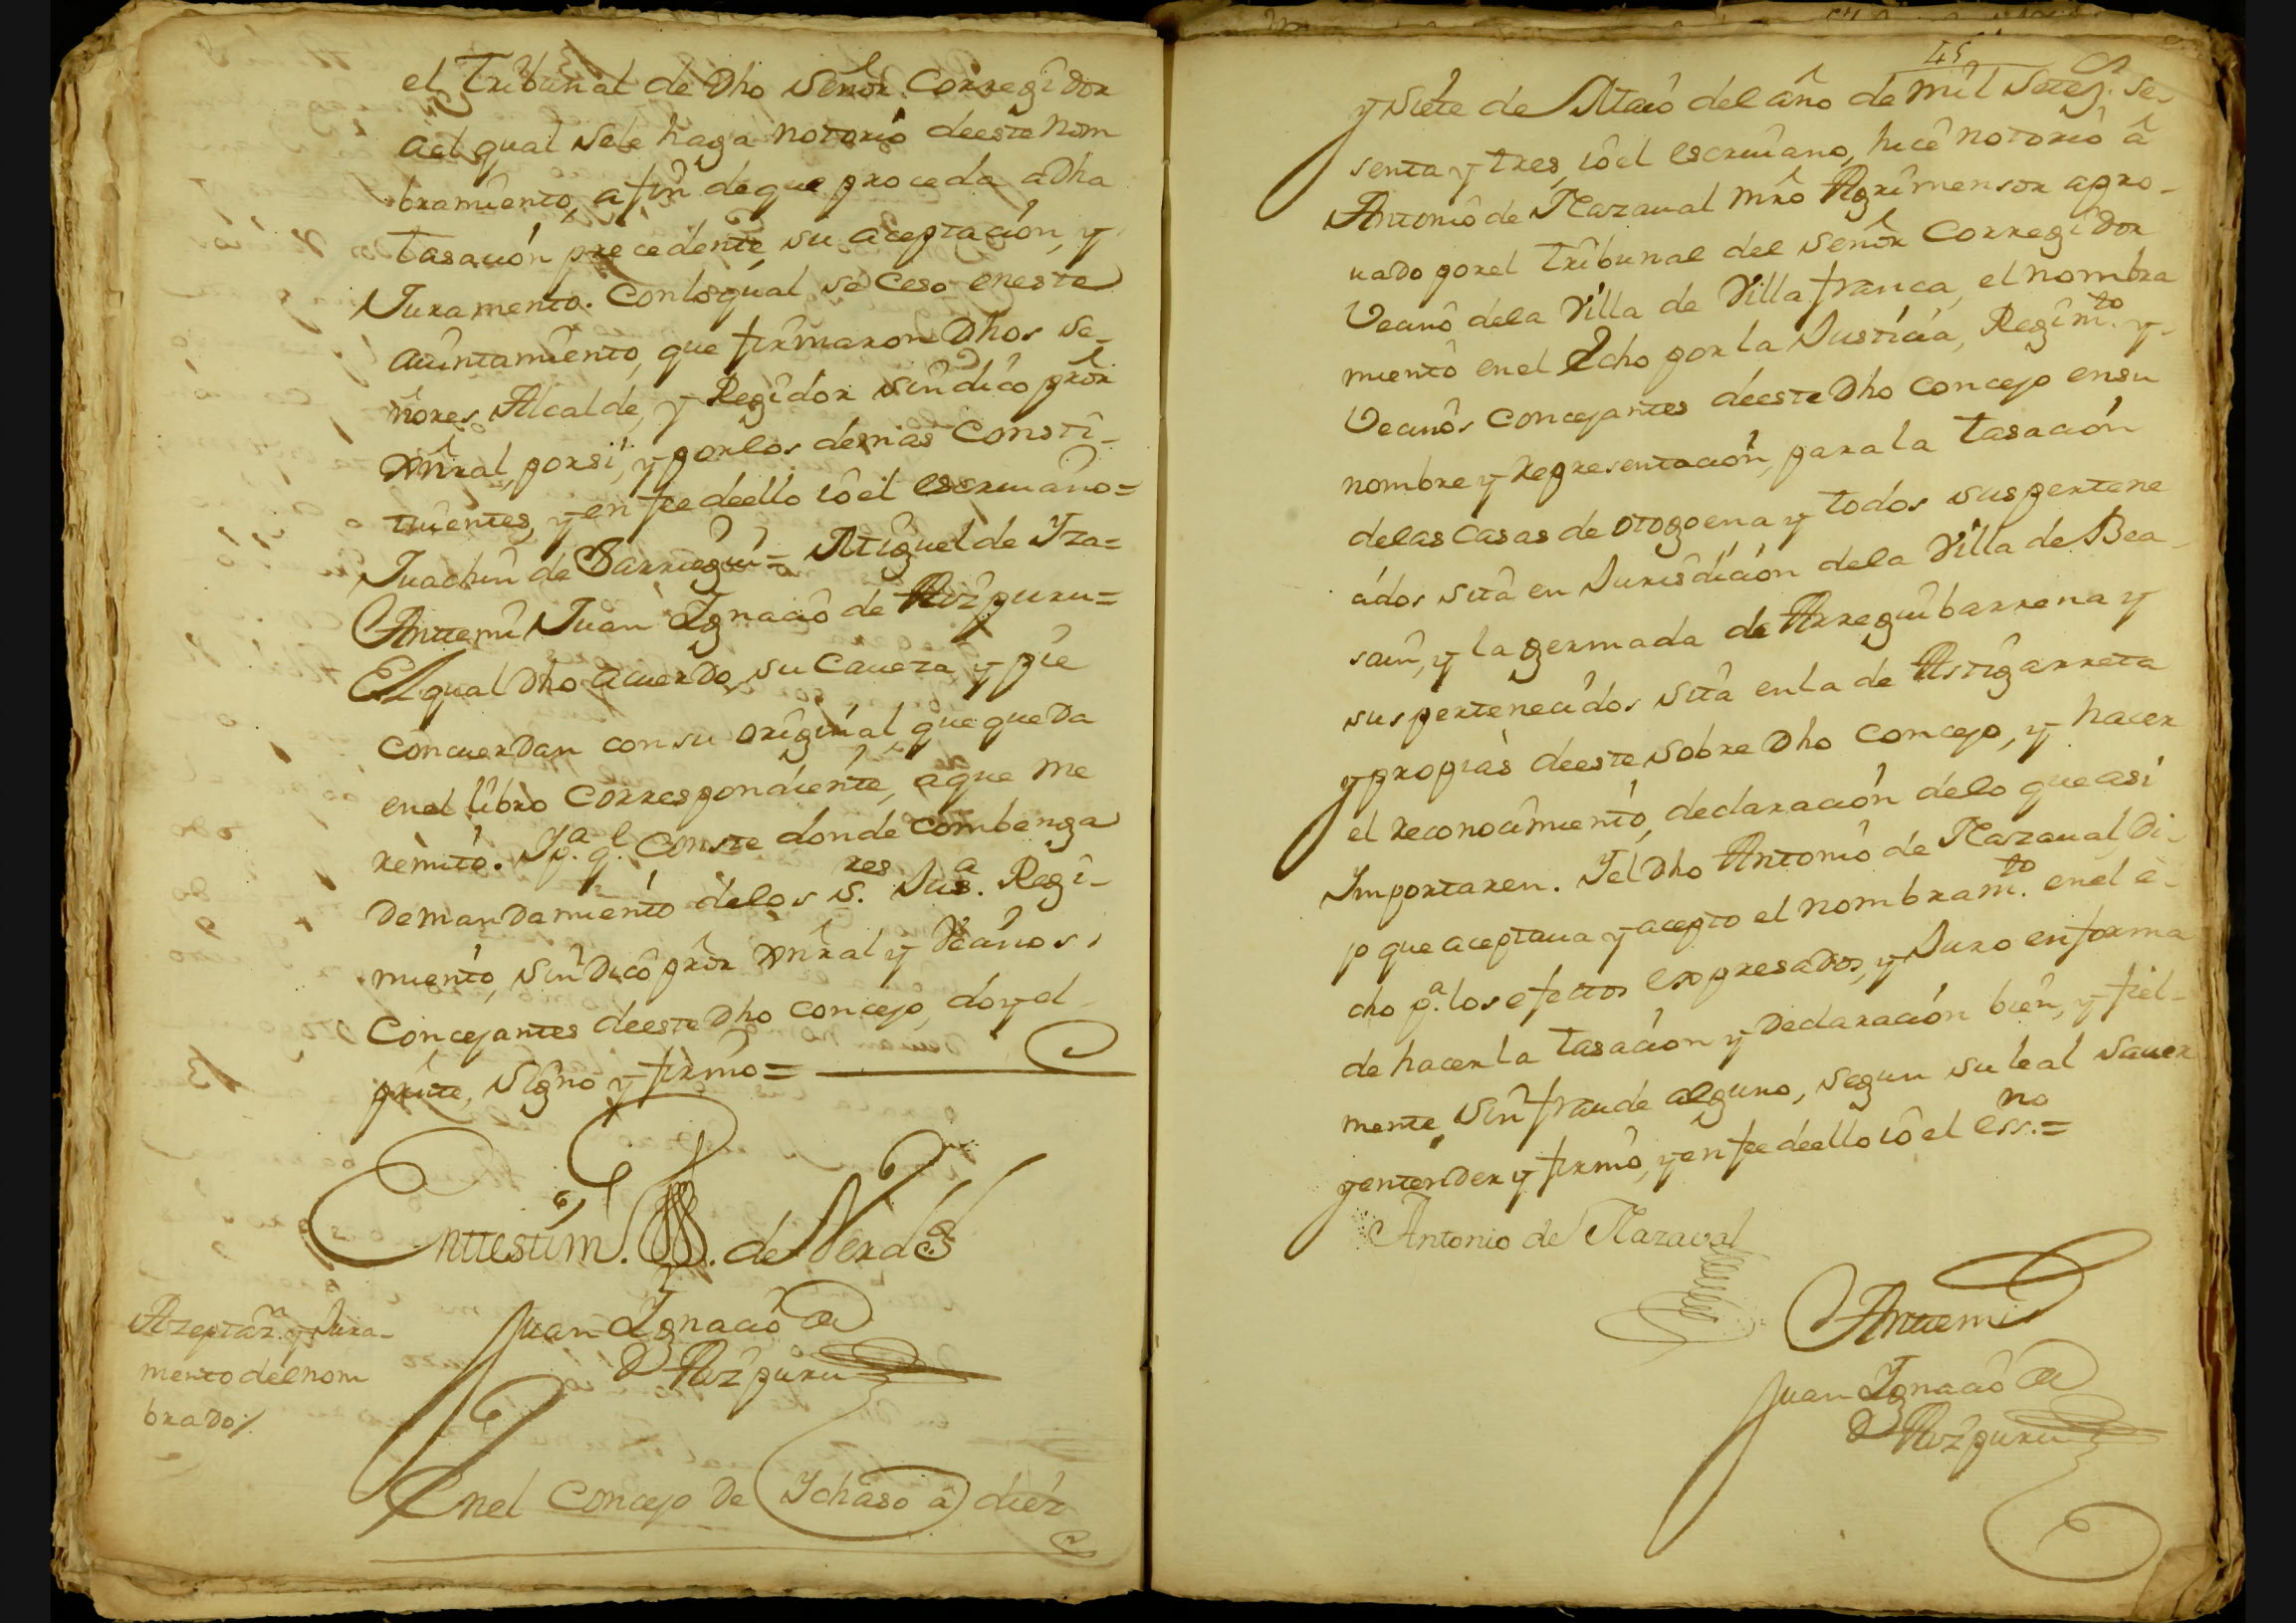 el Tribunal de Dho Señor Corregidor
ael qual sele haga notorio deeste nom
bramiento, a fin deque proceda a Dha
tasación precedente su aceptación, y
Juramento. Conloqual se Ceso eneste
aiuntamiento, que firmaron Dhos Se-
ñores Alcalde, y Regidor sindico prõr
xnral, porsi, y porlos demas Consti-
tuientes, y en fee deello io el escriuano=
Juachin de Barriegui= Miguel de Yza=
Anttemi Juan Ignacio de Aizpuru=
El qual Dho acuerdo, su Caueza y pie
concuerdan con su original que queda
enel libro Correspondiente, aque me
remito. Y pª. qᵉ. Conste donde combenga
Demandamiento delos S.res Jusª. Regi-
miento, sindico prõr xnral y Vecinos,
Concejantes deeste Dho concejo, doy el
preñte, signo y firmo=
Enttestim. de Verdad
Juan Ignacio de
Aizpuru
Azeptaⁿ. y Jura-
mento del nom
brado/.
Enel Concejo de Ichaso â diez
45
y siete de Maio del año de mil Setez. se-
senta y tres, io el escriuano, hice notorio â
Antonio de Mazaual Mrõ Agrimensor apro-
uado porel tribunal del señor Corregidor
Vecino dela Villa de Villafranca, el nombra
miento en el Echo por la Justicia, Regimto. y
Vecinos Concejantes deeste Dho Concejo ensu
nombre y Representación, para la tasación
delas Casas de otogoena y todos sus pertene
cidos sita en Jurisdición dela Villa de Bea-
sain, y la germada de Arreguibarrena y
sus pertenecidos sita enla de Astigarreta
y propias deeste sobre Dho Concejo, y hacer
el reconocimiento, declaración delo que asi
Importaren. Y el Dho Antonio de Mazaual Di-
jo que aceptaua y acepto el nombramto. enel e-
cho pª. los efectos expresados, y Juro en forma
de hacer la tasación y Declaración bien, y fiel-
mente sin fraude alguno, segun su leal sauer
y entender y firmo, y en fee deello io el Ess.no=
Antonio de Mazaval
Anttemi
Juan Ignacio de
Aizpuru